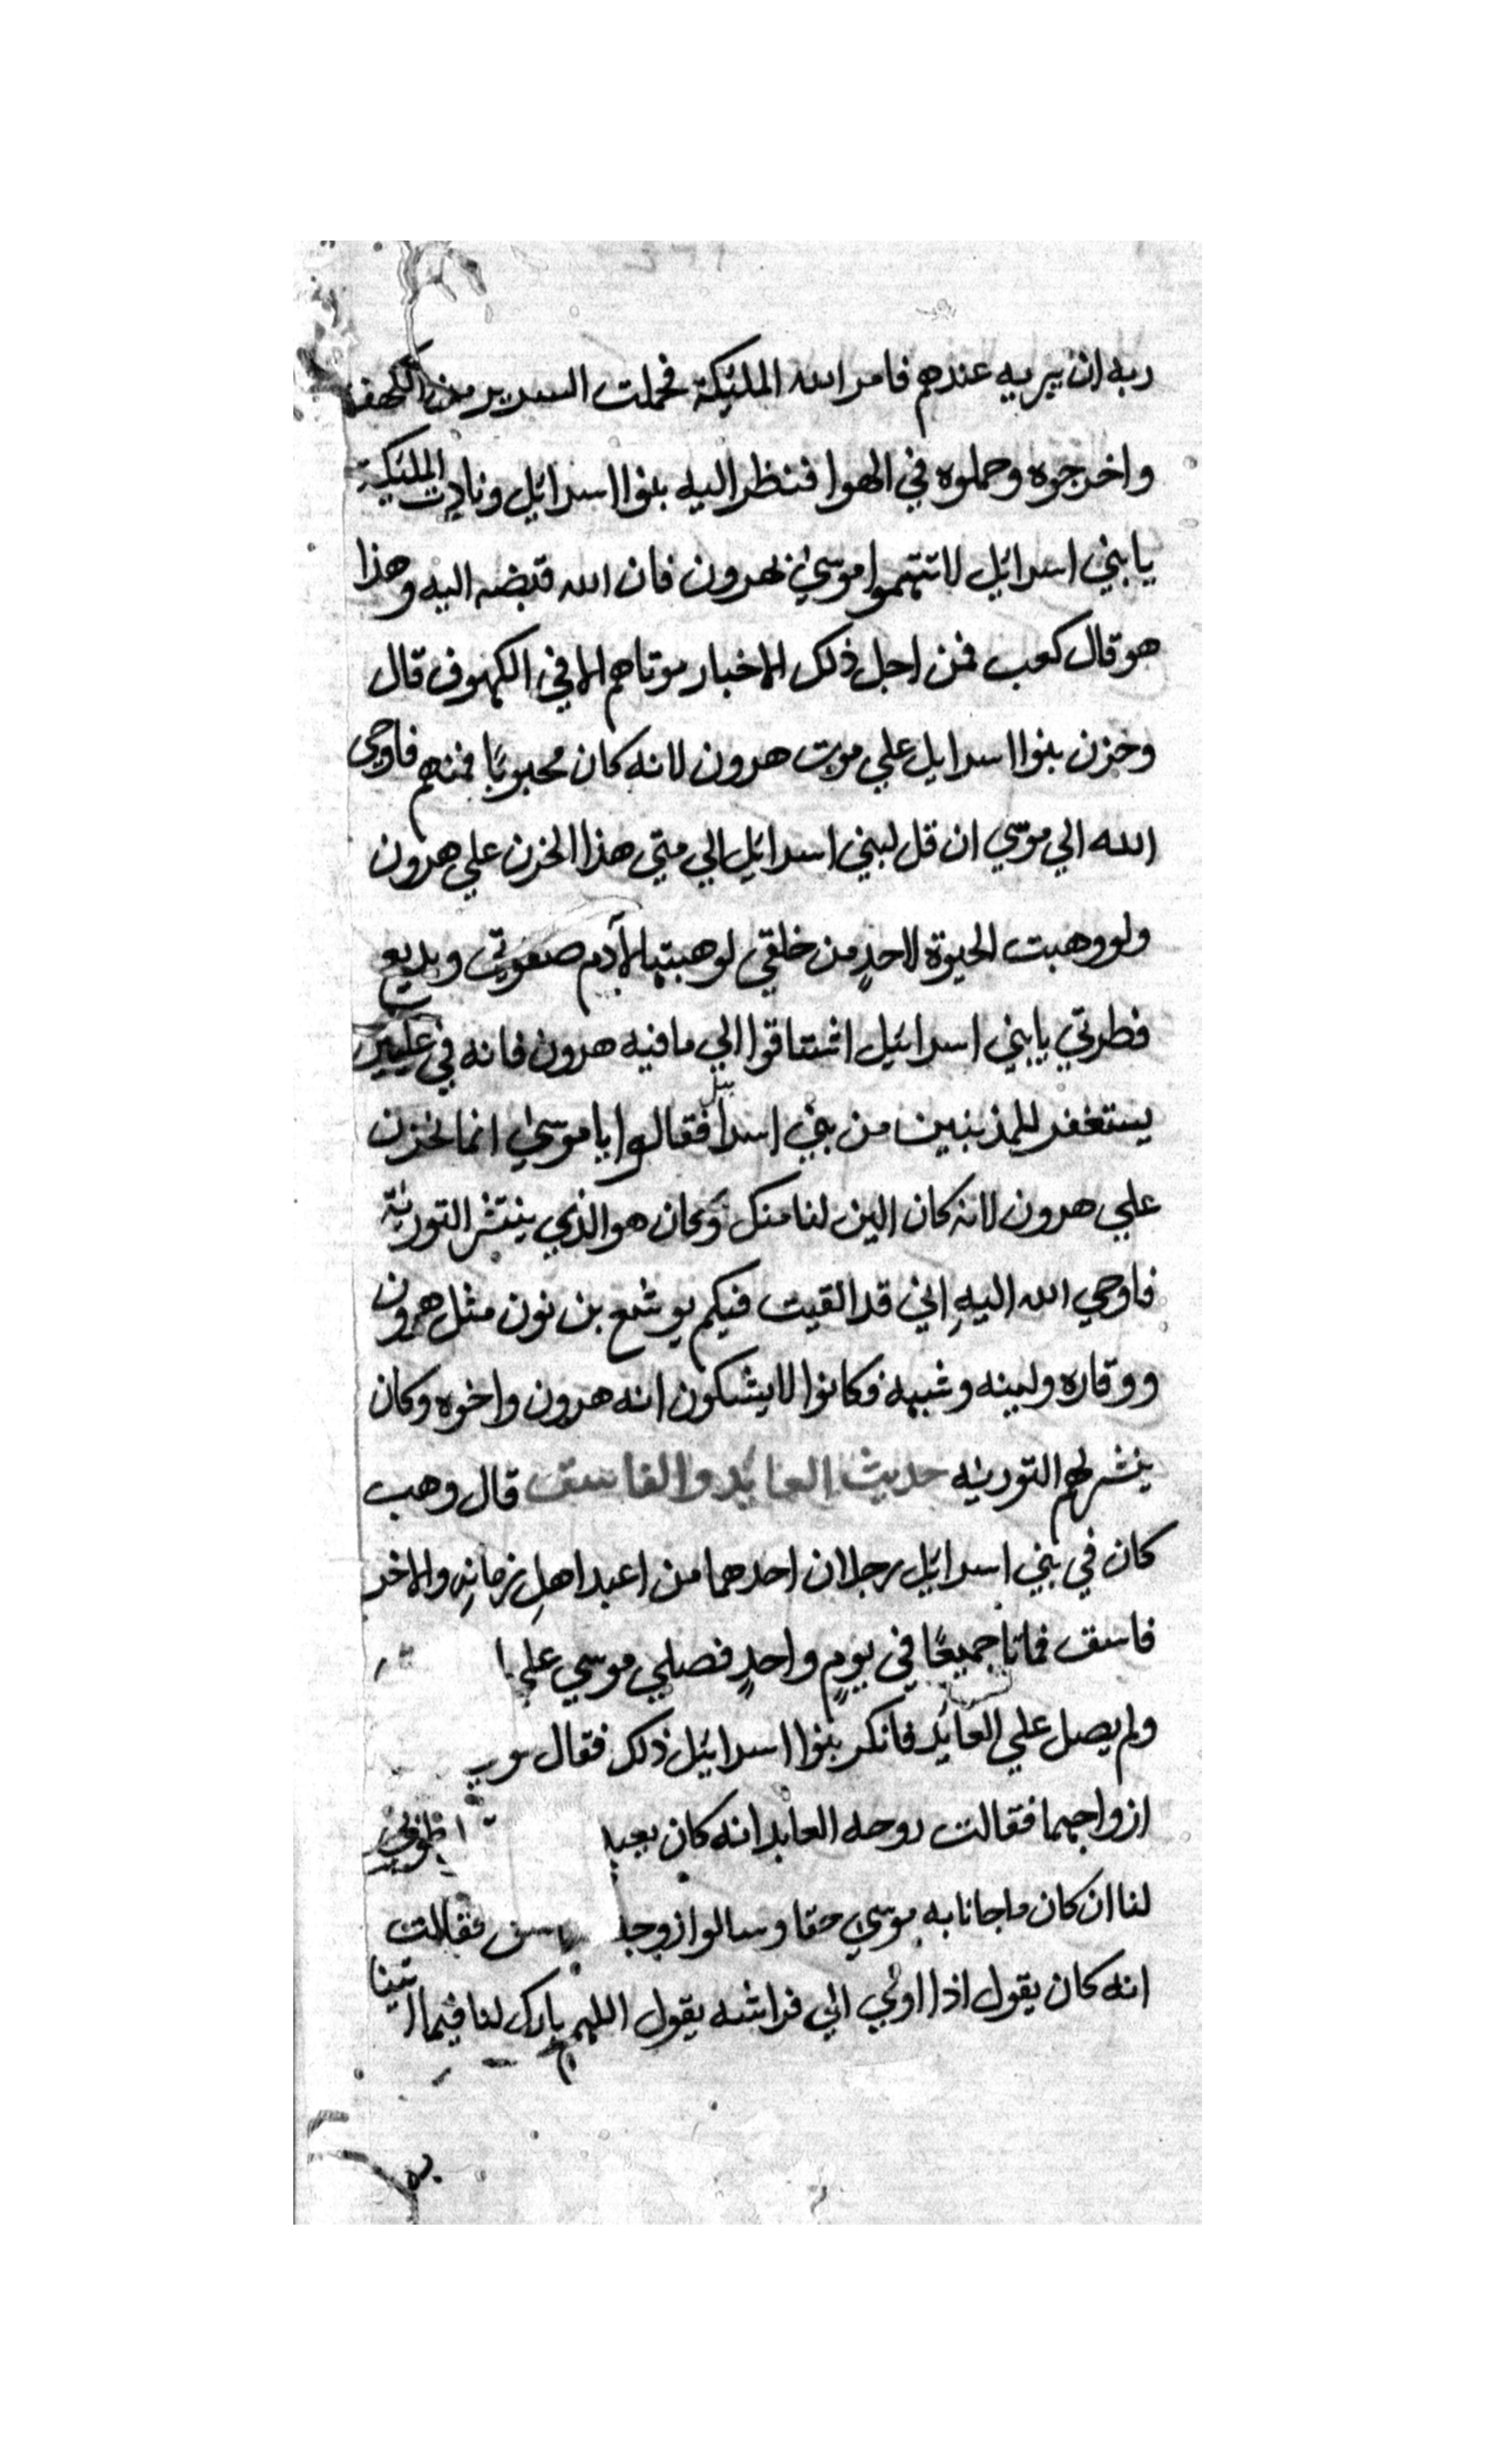 ربه ان يبريه عندهم فامر الله المليكة فحملت السرير من الكهف
واخرجوه وحملوه في الهوا فنظر اليه بنوا اسرائيل ونادت المليكة
يا بني اسرائيل لا تتهموا موسى بهرون فان الله قبضه اليه وهذا
هو قال كعب فمن اجل ذلك الاخبار موتاهم الا في الكهوف قال
وحزن بنوا اسرايل علي موت هرون لانه كان محبوبًا فمنهم فاوحى
الله الي موسي ان قل لبني اسرائيل الي متي هذا الحزن علي هرون
ولو وهبت الحيوة لاحدٍ من خلقي لوهبتها لآدم صفوتي وبديع
فطرتي يا بني اسرائيل اشتاقوا الي ما فيه هرون فانه في عليين
يستغفر للمذنبين من بني اسرائيل فقالوا يا موسى انما نحزن
علي هرون لانه كان الين لنا منك وكان هو الذي ينشر التورية
فاوحي الله اليهِ اني قد القيت فيكم يوشع بن نون مثل هرون
ووقاره ولينه وشبهه فكانوا لا يشكون انه هرون واخوه وكان
ينشر لهم التورية حديث العابد والفاسق قال وهب
كان في بني اسرائيل رجلان احدهما من اعبد اهلِ زمانِه والاخر
فاسق فماتا جميعًا في يومٍ واحدٍ فصلي موسي علي
ولم يصل علي العابد فانكر بنوا اسرائيل ذلك فقال
ازواجهما فقالت زوجه العابد انه كان
لنا ان كان ما جانا به موسى حقا وسالوا فقالت
انه كان يقول اذا اوي الي فراشه يقول اللهم بارك لنا فيما اتينا